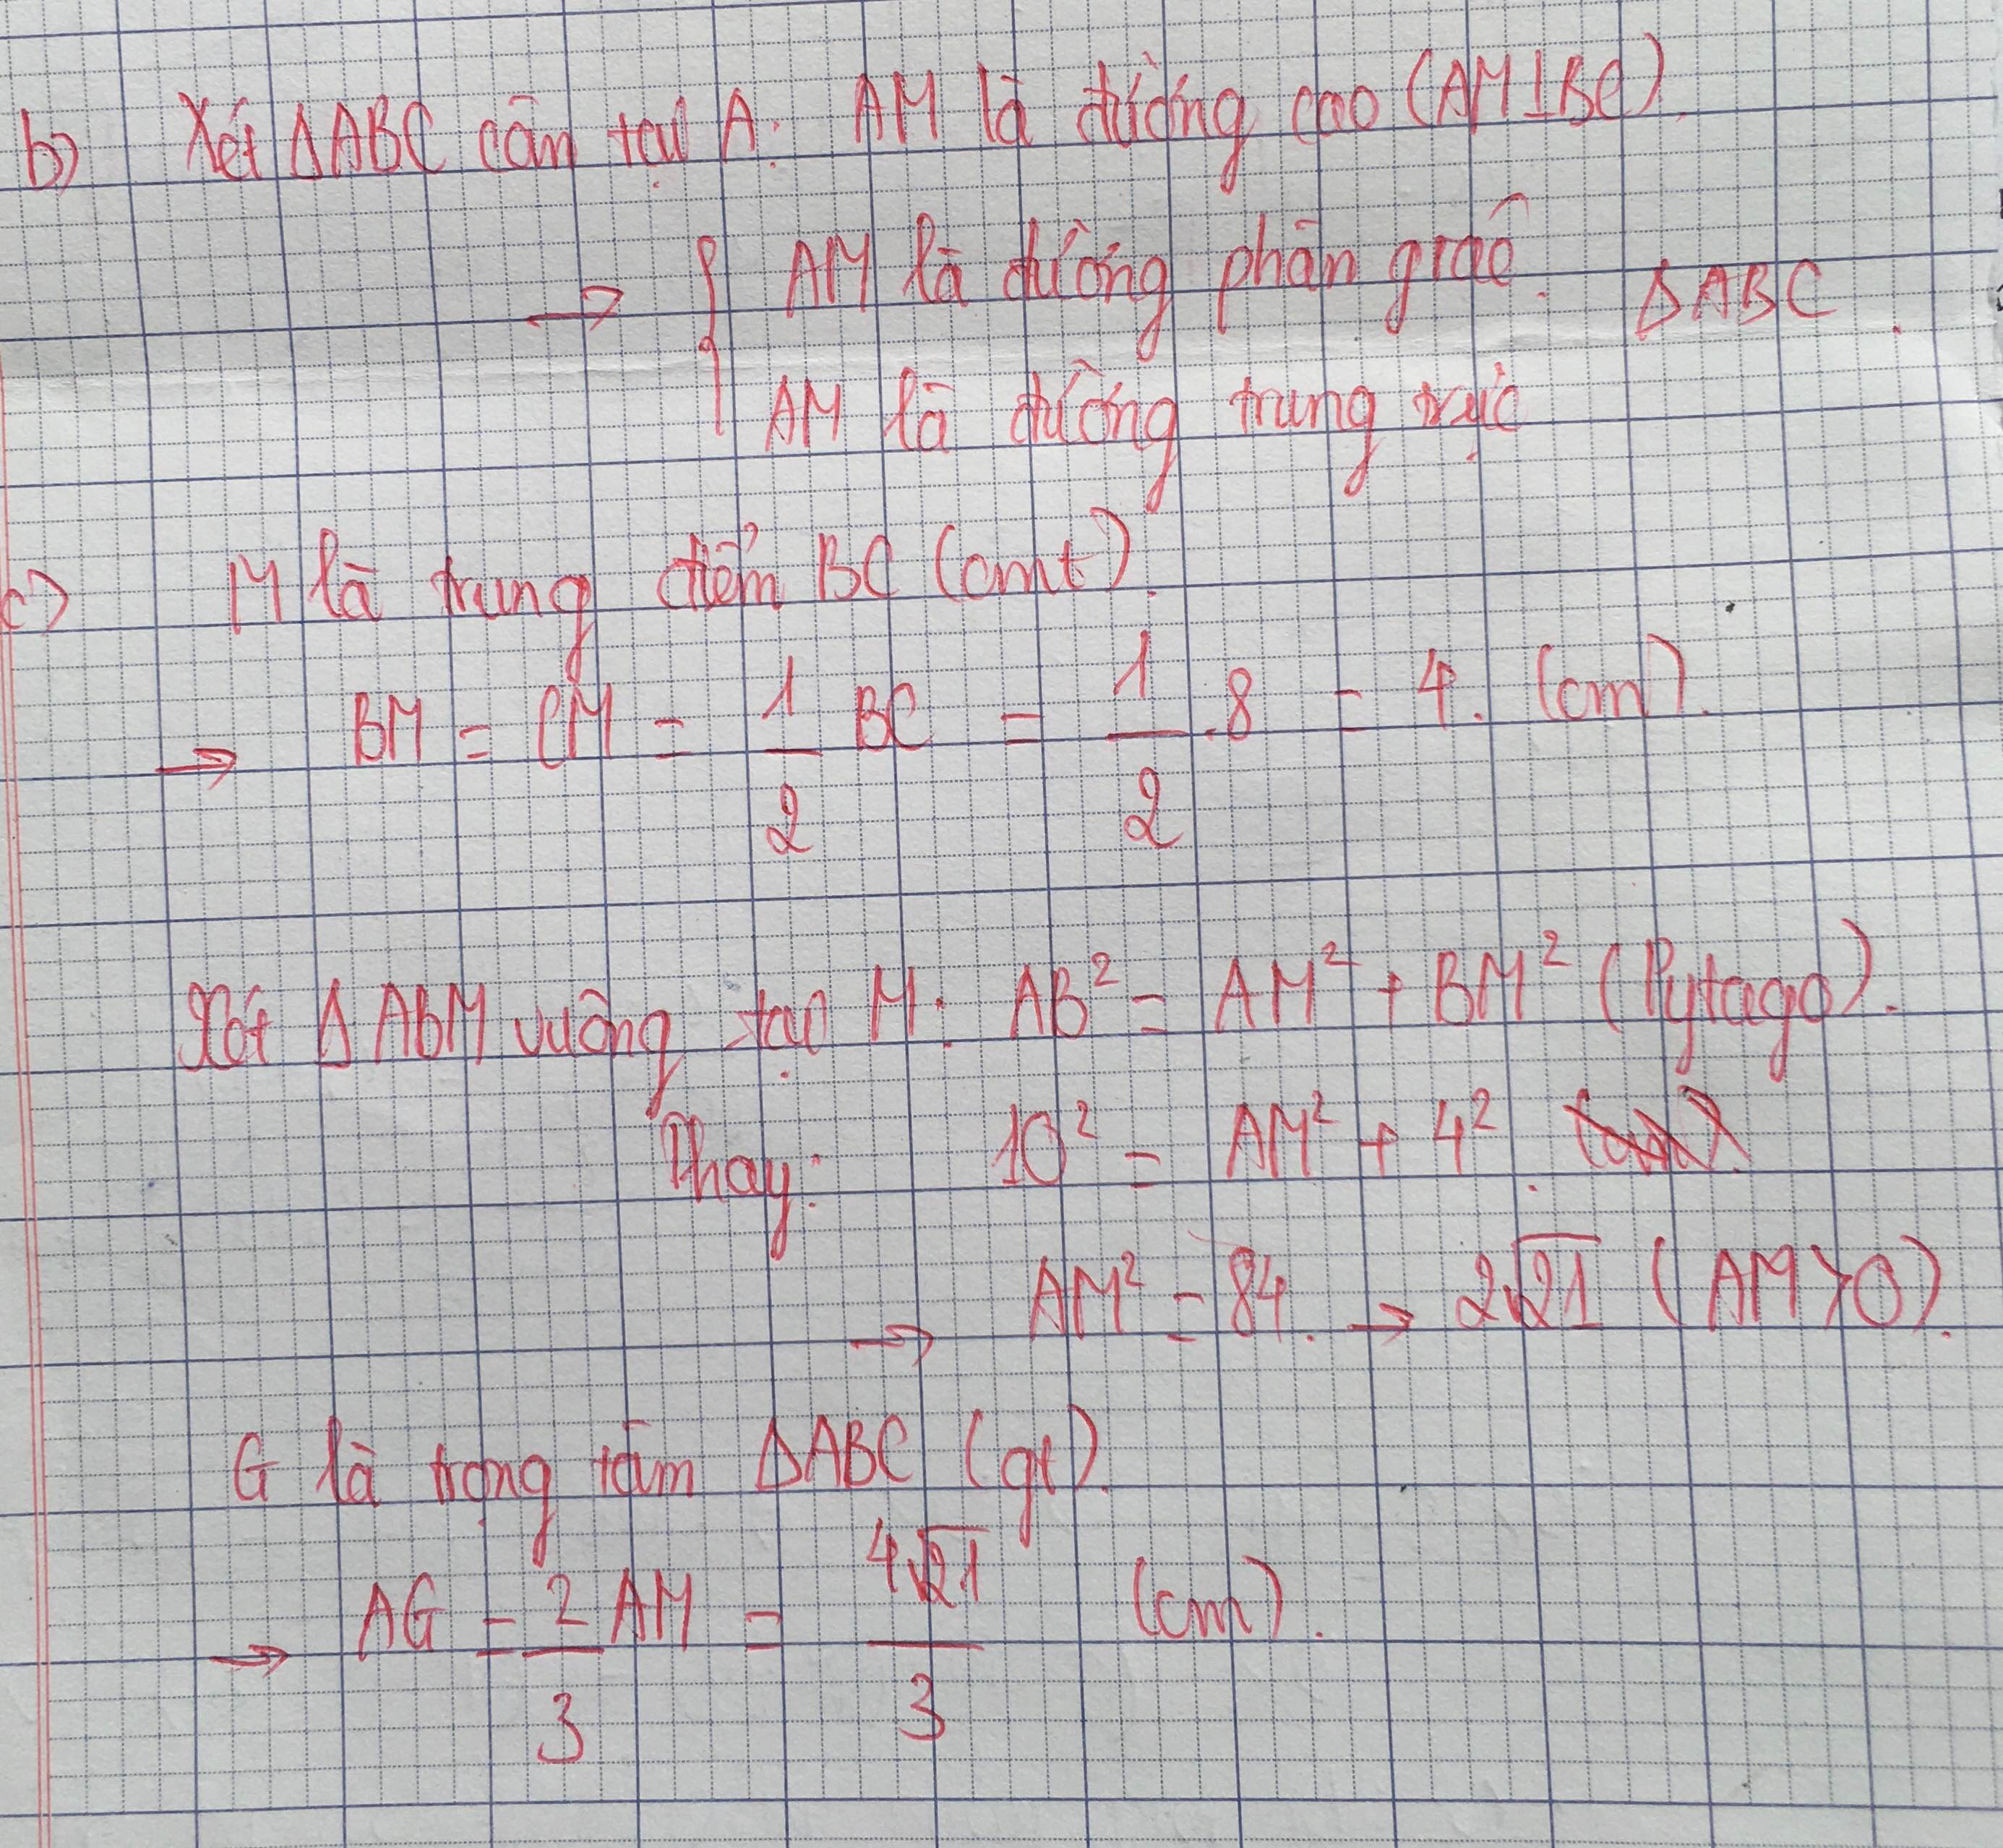 b) Xét ΔABC cân tại A: AM là đường cao (AM⊥BC).
→ { AM là đường phân giác. ΔABC.
AM là đường trung trực
c) M là trung điểm BC (cmt).
→ BM = CM = 1/2 BC = 1/2 .8 = 4. (cm).
Xét Δ ABM vuông tại M: AB² = AM² + BM² (Pytago).
Thay: 10² = AM² + 4².
→ AM² = 84. → 2√21 (AM>0).
G là trọng tâm ΔABC (gt).
→ AG = 2/3 AM = 4√21/3 (cm).